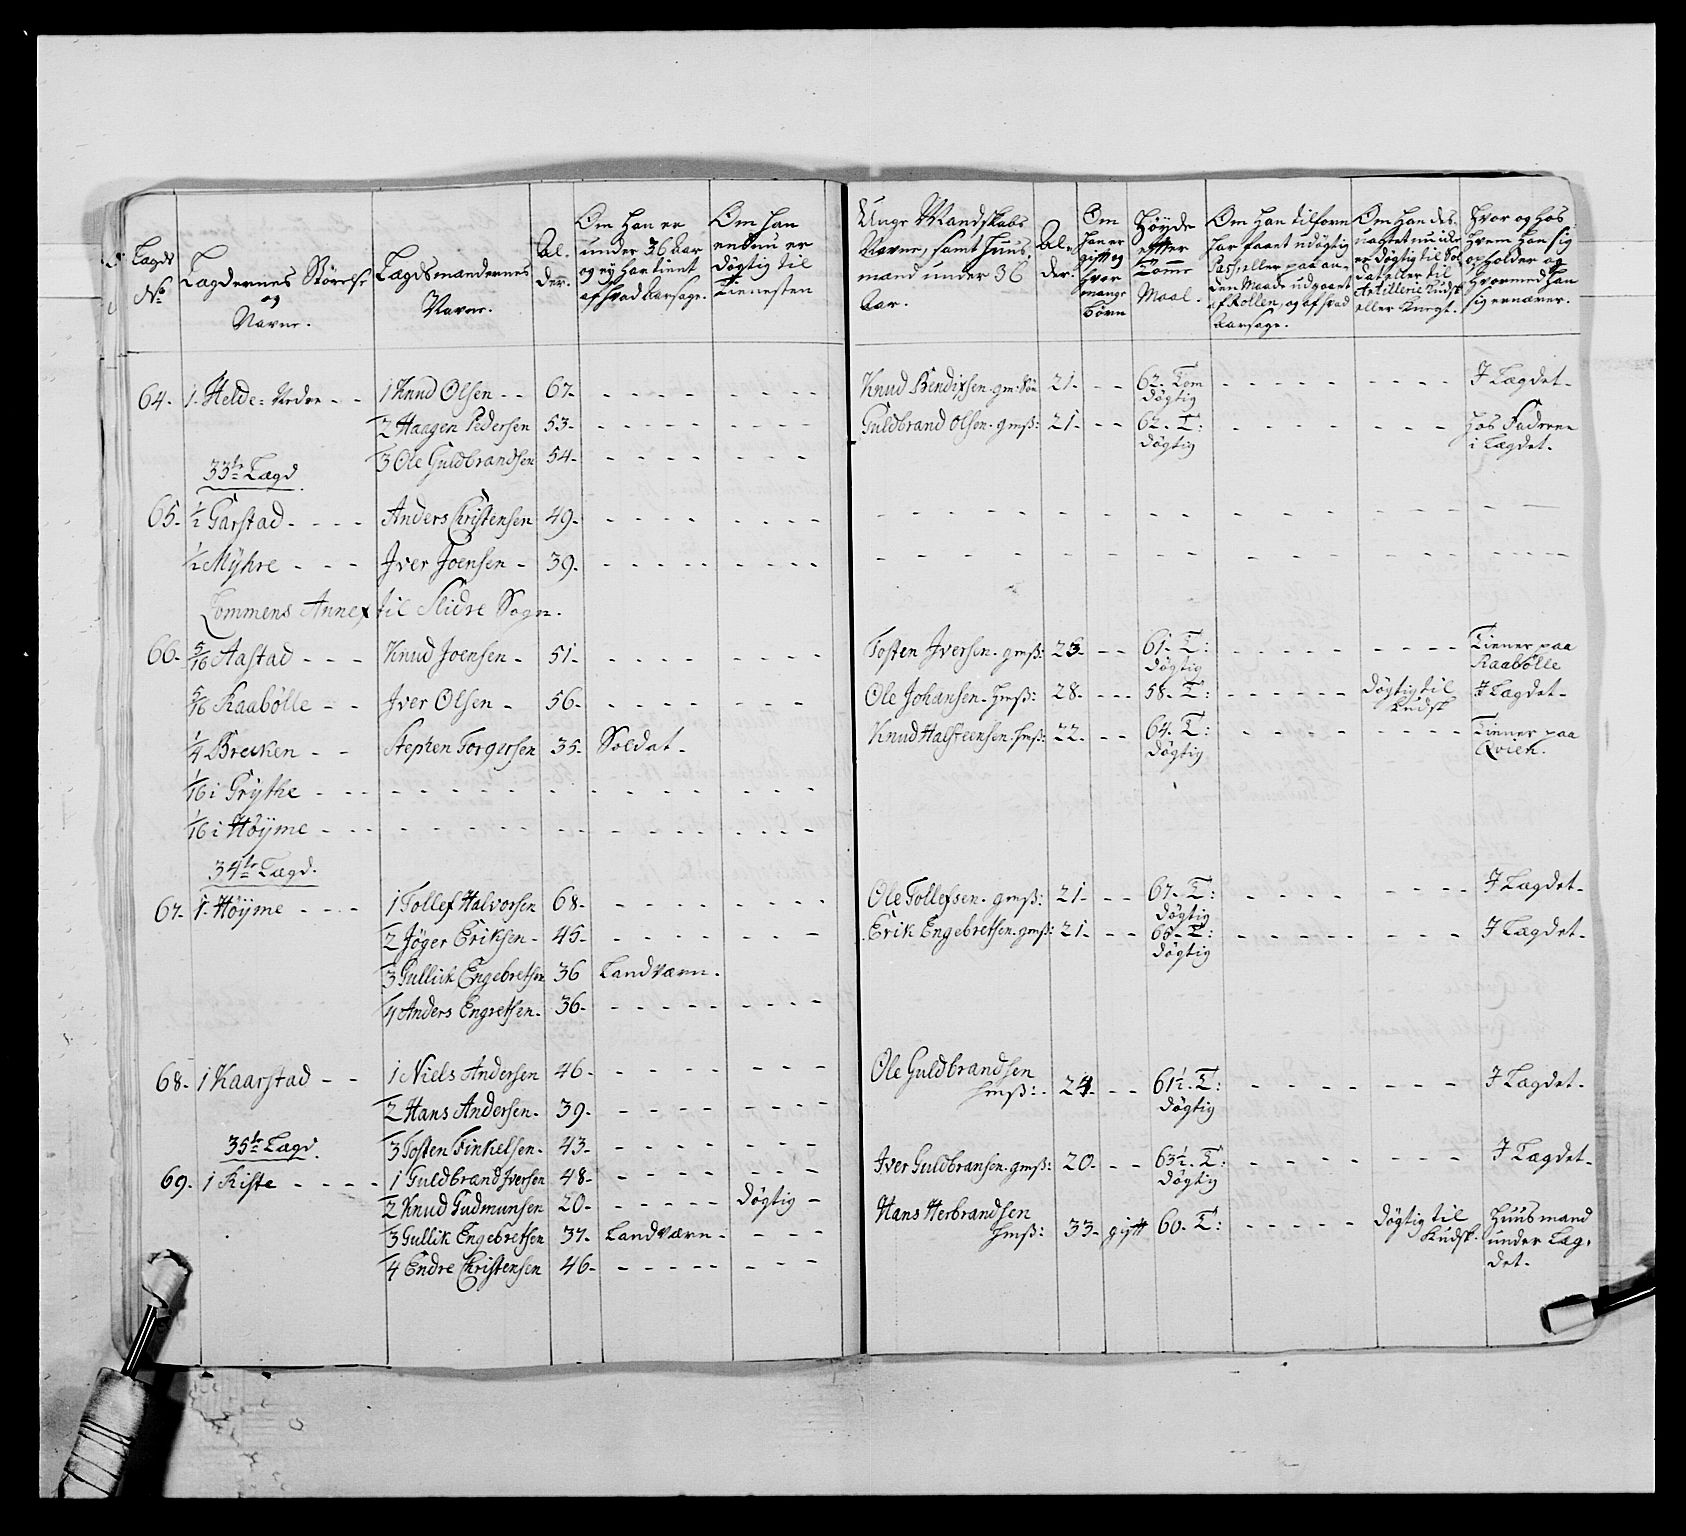 Lægds No
Lægdernes Störelse og Navne.
Lægdsmændernes Navne.
Al- der.
Om han er under 36 Aar og ej har tient af hvad Aarsage.
Om han endnu er døgtig til Tienesten
Unge Mandskabs Navne, samt Huus- mænd under 36 Aar.
Al- der.
Om han er gift og hvor mange Börn
Höyde efter Tomme Maal.
Om han tilforn har faaet udögtig Pas, eller paa an- den Maade udgaaet af Rollen, og af hvad Aarsage.
Om han des- uagtet nu icke er døgtig til Sol- dat eller til Artillerie Kudsk eller Knegt.
Hvor og hos hvem han sig opholder og hvormed han sig ernærer.
64. 1. Helde: Nedre - - 1 Knud Olsen - - 67. Knud Bendixsen. gm: Sön 21. - - 62. Tom døgtig J Lægdet.
2 Haagen Pedersen 53. Guldbrand Olsen. gmß: 21. - - 62. T: døgtig hos Faderen i Lægdet.
3 Ole Guldbrandsen 54.
33te Lægd
65. 1/2 Garstad - - - - Anders Christensen 49.
1/2 Mÿhre - - - Jver Joensen - 39.
Lommens Annex til Slidre Sogn.
66. 5/16 Aastad - - - Knud Joensen - 51. Tosten Jversen. gmß: 23. - - 61. T: døgtig Tiener paa Raabölle
5/16 Raabölle - - Jver Olsen - 56. Ole Johansen. Hmß: 28. - - - 58. T: døgtig til Kudsk J Lægdet.
1/4 Brecken - - Stephen Torgersen 35. Soldat. Knud Halsteensen. hmß: 22. - - 64. T: døgtig Tiener paa Qvien.
1/16 i Grÿthe - - - -
1/16 i Höÿme - - - -
34te Lægd.
67. 1. Höÿme - - - - 1 Tollef Halvorsen 68. Ole Tollefsen. gmß: 21. - - 67. T: døgtig J Lægdet.
2 Jöger Eriksen. 45. Erik Engebretsen. gmß: 21. - - 66. T: døgtig J Lægdet.
3 Gullik Engebretsen 36 Landværn.
4 Anders Engretsen. 36.
68. 1 Kaarstad - - 1 Niels Andersen 46. Ole Guldbrandsen hmß: 24. - - 61 1/2. T: døgtig J Lægdet.
2 Hans Andersen. 39.
35te Lægd. 3 Tosten Finkelsen. 43. Jver Guldbransen. gmß: 20. - - 63 1/2. T: døgtig J Lægdet.
69. 1 Riste - - - - 1 Guldbrand Jversen 48.
2 Knud Gudmunsen 20. døgtig - Hans Herbrandsen hmß: 33. gift 60. T: døgtig til Kudsk. Huusmand under Læg- det.
3 Gullik Engebretsen 37. Landværn.
4 Endre Christensen 46.